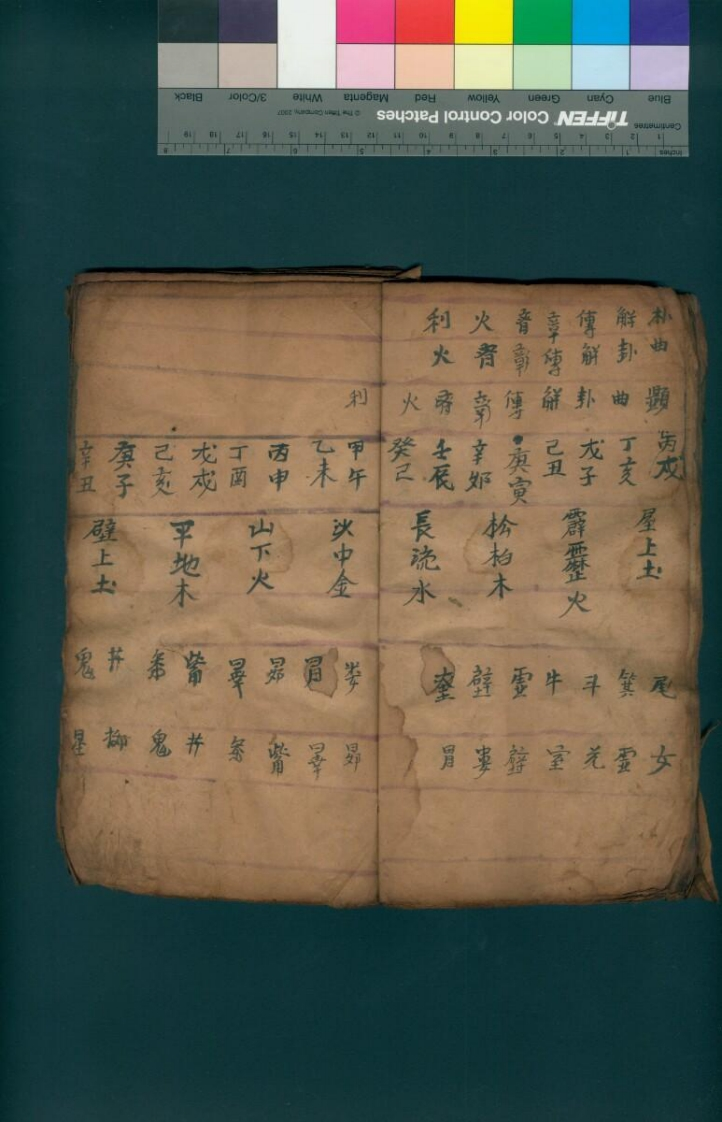 TIFFEN Color Control Patches
© The Tiffen Company, 2007
Centimetres
Inches
Blue Cyan Green Yellow Red Magenta White 3/Color Black
朴曲 觧卦 傳觧 章傳 音章 火者 利火
顯 曲 卦 觧 傳 章 者 火
丙戌 丁亥 戊子 己丑 庚寅 辛卯 壬辰 癸己
屋上土 霹靂火 松柏木 長流水
尾 箕 斗 牛 虛 壁 室
女 虛 危 室 壁 婁 胃
利
甲午 乙未 丙申 丁酉 戊戌 己亥 庚子 辛丑
沙中金 山下火 平地木 壁上土
婁 胃 昴 畢 觜 參 井 鬼
昴 畢 觜 參 井 鬼 柳 星